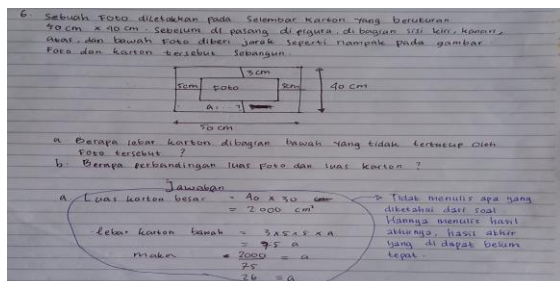 6. Sebuah Foto diletakkan pada Selembar Karton yang berukuran
50 cm x 40 cm. Sebelum di pasang di figura, dibagian sisi kiri, kanan,
atas, dan bawah Foto diberi jarak seperti nampak pada gambar
Foto dan karton tersebut Sebangun.
3 cm
5cm Foto 5cm 40 cm
a...?
50 cm
a Berapa lebar karton dibagian bawah yang tidak tertutup oleh
Foto tersebut ?
b. Berapa perbandingan luas Foto dan luas karton ?
Jawaban
a Luas karton besar = 40 x 50
= 2000 cm²
lebar karton bawah = 3 x 5 x 5 x a
= 75 a
maka = 2000 = a
75
26 = a
Tidak menulis apa yang
diketahui dari soal
Hannya menulis hasil
akhirnya, hasil akhir
yang di dapat belum
tepat.